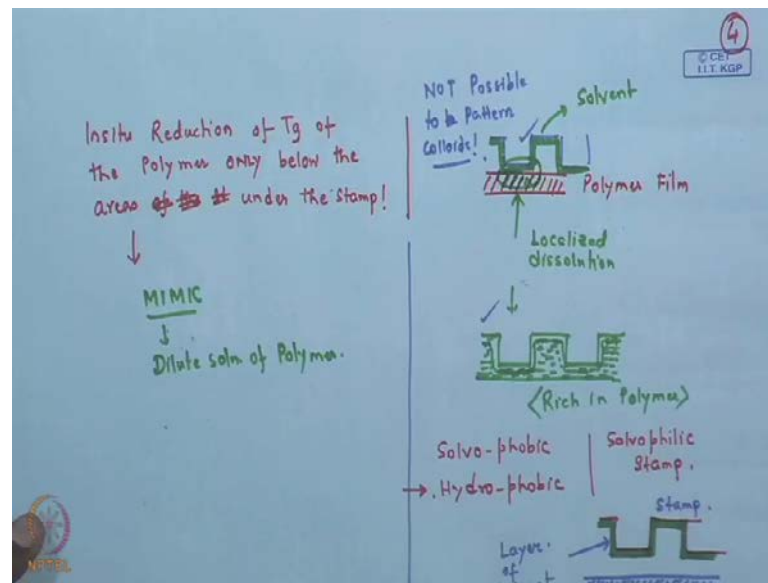 4
© CET
I.I.T. KGP
Insitu Reduction of Tg of
the Polymer only below the
areas under the stamp!
MIMIC
Dilute soln of Polymer.
NOT Possible
to Pattern
Colloids!
Solvent
Polymer Film
Localized
dissolution
<Rich in Polymer>
Solvo-phobic
Hydro-phobic
Solvophilic
Stamp.
Stamp.
Layer
of
NPTEL